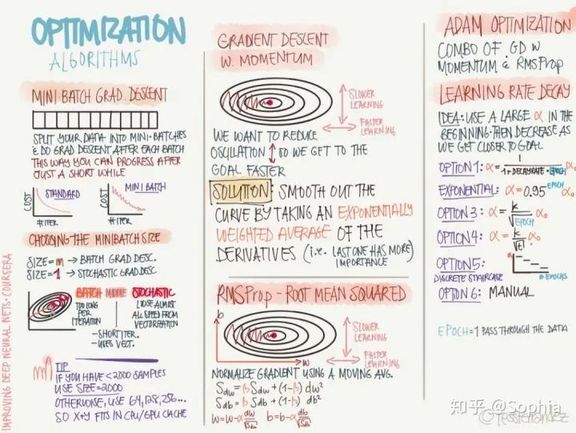 OPTIMIZATION
ALGORITHMS
MINI BATCH GRAD. DESCENT
SPLIT YOUR DATA INTO MINI-BATCHES
& DO GRAD DESCENT AFTER EACH BATCH
THIS WAY YOU CAN PROGRESS AFTER
JUST A SHORT WHILE
COST
STANDARD
# ITER
COST
MINI BATCH
# ITER
CHOOSING THE MINIBATCH SIZE
SIZE=m → BATCH GRAD DESC.
SIZE=1 → STOCHASTIC GRAD DESC
BATCH
TOO LONG
PER
ITERATION
STOCHASTIC
LOSE ALMOST
ALL SPEED FROM
VECTORISATION
- SHORT ITER.
- USES VECT.
TIP
IF YOU HAVE <2000 SAMPLES
USE SIZE=2000
OTHERWISE, USE 64, 128, 256...
SO X+Y FITS IN CPU/GPU CACHE
IMPROVING DEEP NEURAL NETS · COURSERA
GRADIENT DESCENT
W. MOMENTUM
SLOWER
LEARNING
FASTER
LEARNING
WE WANT TO REDUCE
OSCILLATION ↕ SO WE GET TO THE
GOAL FASTER
SOLUTION: SMOOTH OUT THE
CURVE BY TAKING AN EXPONENTIALLY
WEIGHTED AVERAGE OF THE
DERIVATIVES (i.e. LAST ONE HAS MORE)
IMPORTANCE
RMSProp - ROOT MEAN SQUARED
b
w
SLOWER
LEARNING
FASTER
LEARNING
NORMALIZE GRADIENT USING A MOVING AVG.
Sdw = βSdw + (1-β) dw²
Sdb = βSdb + (1-β) db²
w = w-α dw/√Sdw b = b-α db/√Sdb
ADAM OPTIMIZATION
COMBO OF GD W
MOMENTUM & RMSProp
LEARNING RATE DECAY
IDEA: USE A LARGE α IN THE
BEGINNING THEN DECREASE AS
WE GET CLOSER TO GOAL
OPTION 1: α = 1/1+DECAYRATE·EPOCH α₀
EXPONENTIAL: α = 0.95^EPOCH α₀
OPTION 3: α = k/√EPOCH α₀
OPTION 4: α = k/√t α₀
OPTION 5:
DISCRETE STAIRCASE
α
EPOCHS
OPTION 6: MANUAL
EPOCH = 1 PASS THROUGH THE DATA
知乎 @Sophia